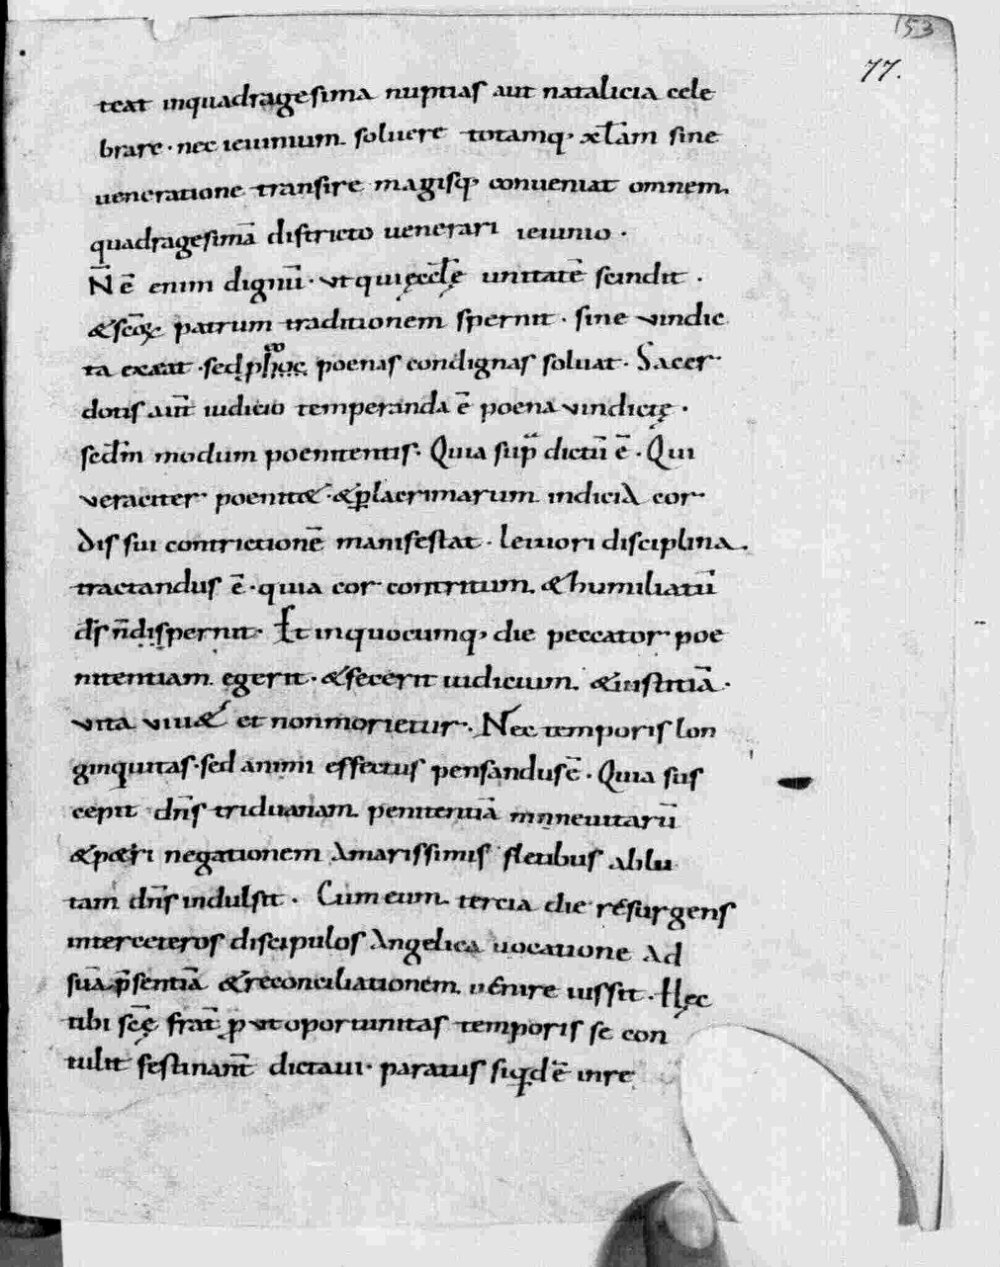 153
77.
teat inquadragesima nuptias aut natalicia cele
brare · nec ieiunium soluere totamq; xl̄am sine
ueneratione transire magisq; conueniat omnem
quadragesimā districto uenerari ieiunio ·
N̄ ē enim dignū · ut qui ęccl̄ę unitatē scindit ·
&sc̄oꝝ patrum traditionem spernit · sine vindic
ta exeat · sed p hoc poenas condignas soluat · Sacer
dotis aūt iudicio temperanda ē poena vindictę ·
sed m̄ modum poenitentis · Quia sup̄ dictū ē · Qui
veraciter poenit& · &ꝑlacrimarum indicia cor
dis sui contrictionē manifestat · leuiori disciplina
tractandus ē · quia cor contritum &humiliatū
d̄s n̄ dispernit · Et inquocumq; die peccator poe
nitentiam egerit · &fecerit iudicium &iustitiā ·
vita viu& et nonmorietur · Nec temporis lon
ginquitas · sed animi effectus pensandus ē · Quia sus
cepit dn̄s triduanam penitentiā inneuitarū
&p&ri negationem Amarissimis fletibus ablu
tam dn̄s indulsit · Cum eum tercia die resurgens
interceteros discipulos Angelica uocatione Ad
suā p̄sentiā &reconciliationem uenire iussit · Hęc
tibi sc̄ę frat̄ p̄ut oportunitas temporis se con
tulit festinant̄ dictaui · paratus siqd̄ ē inre